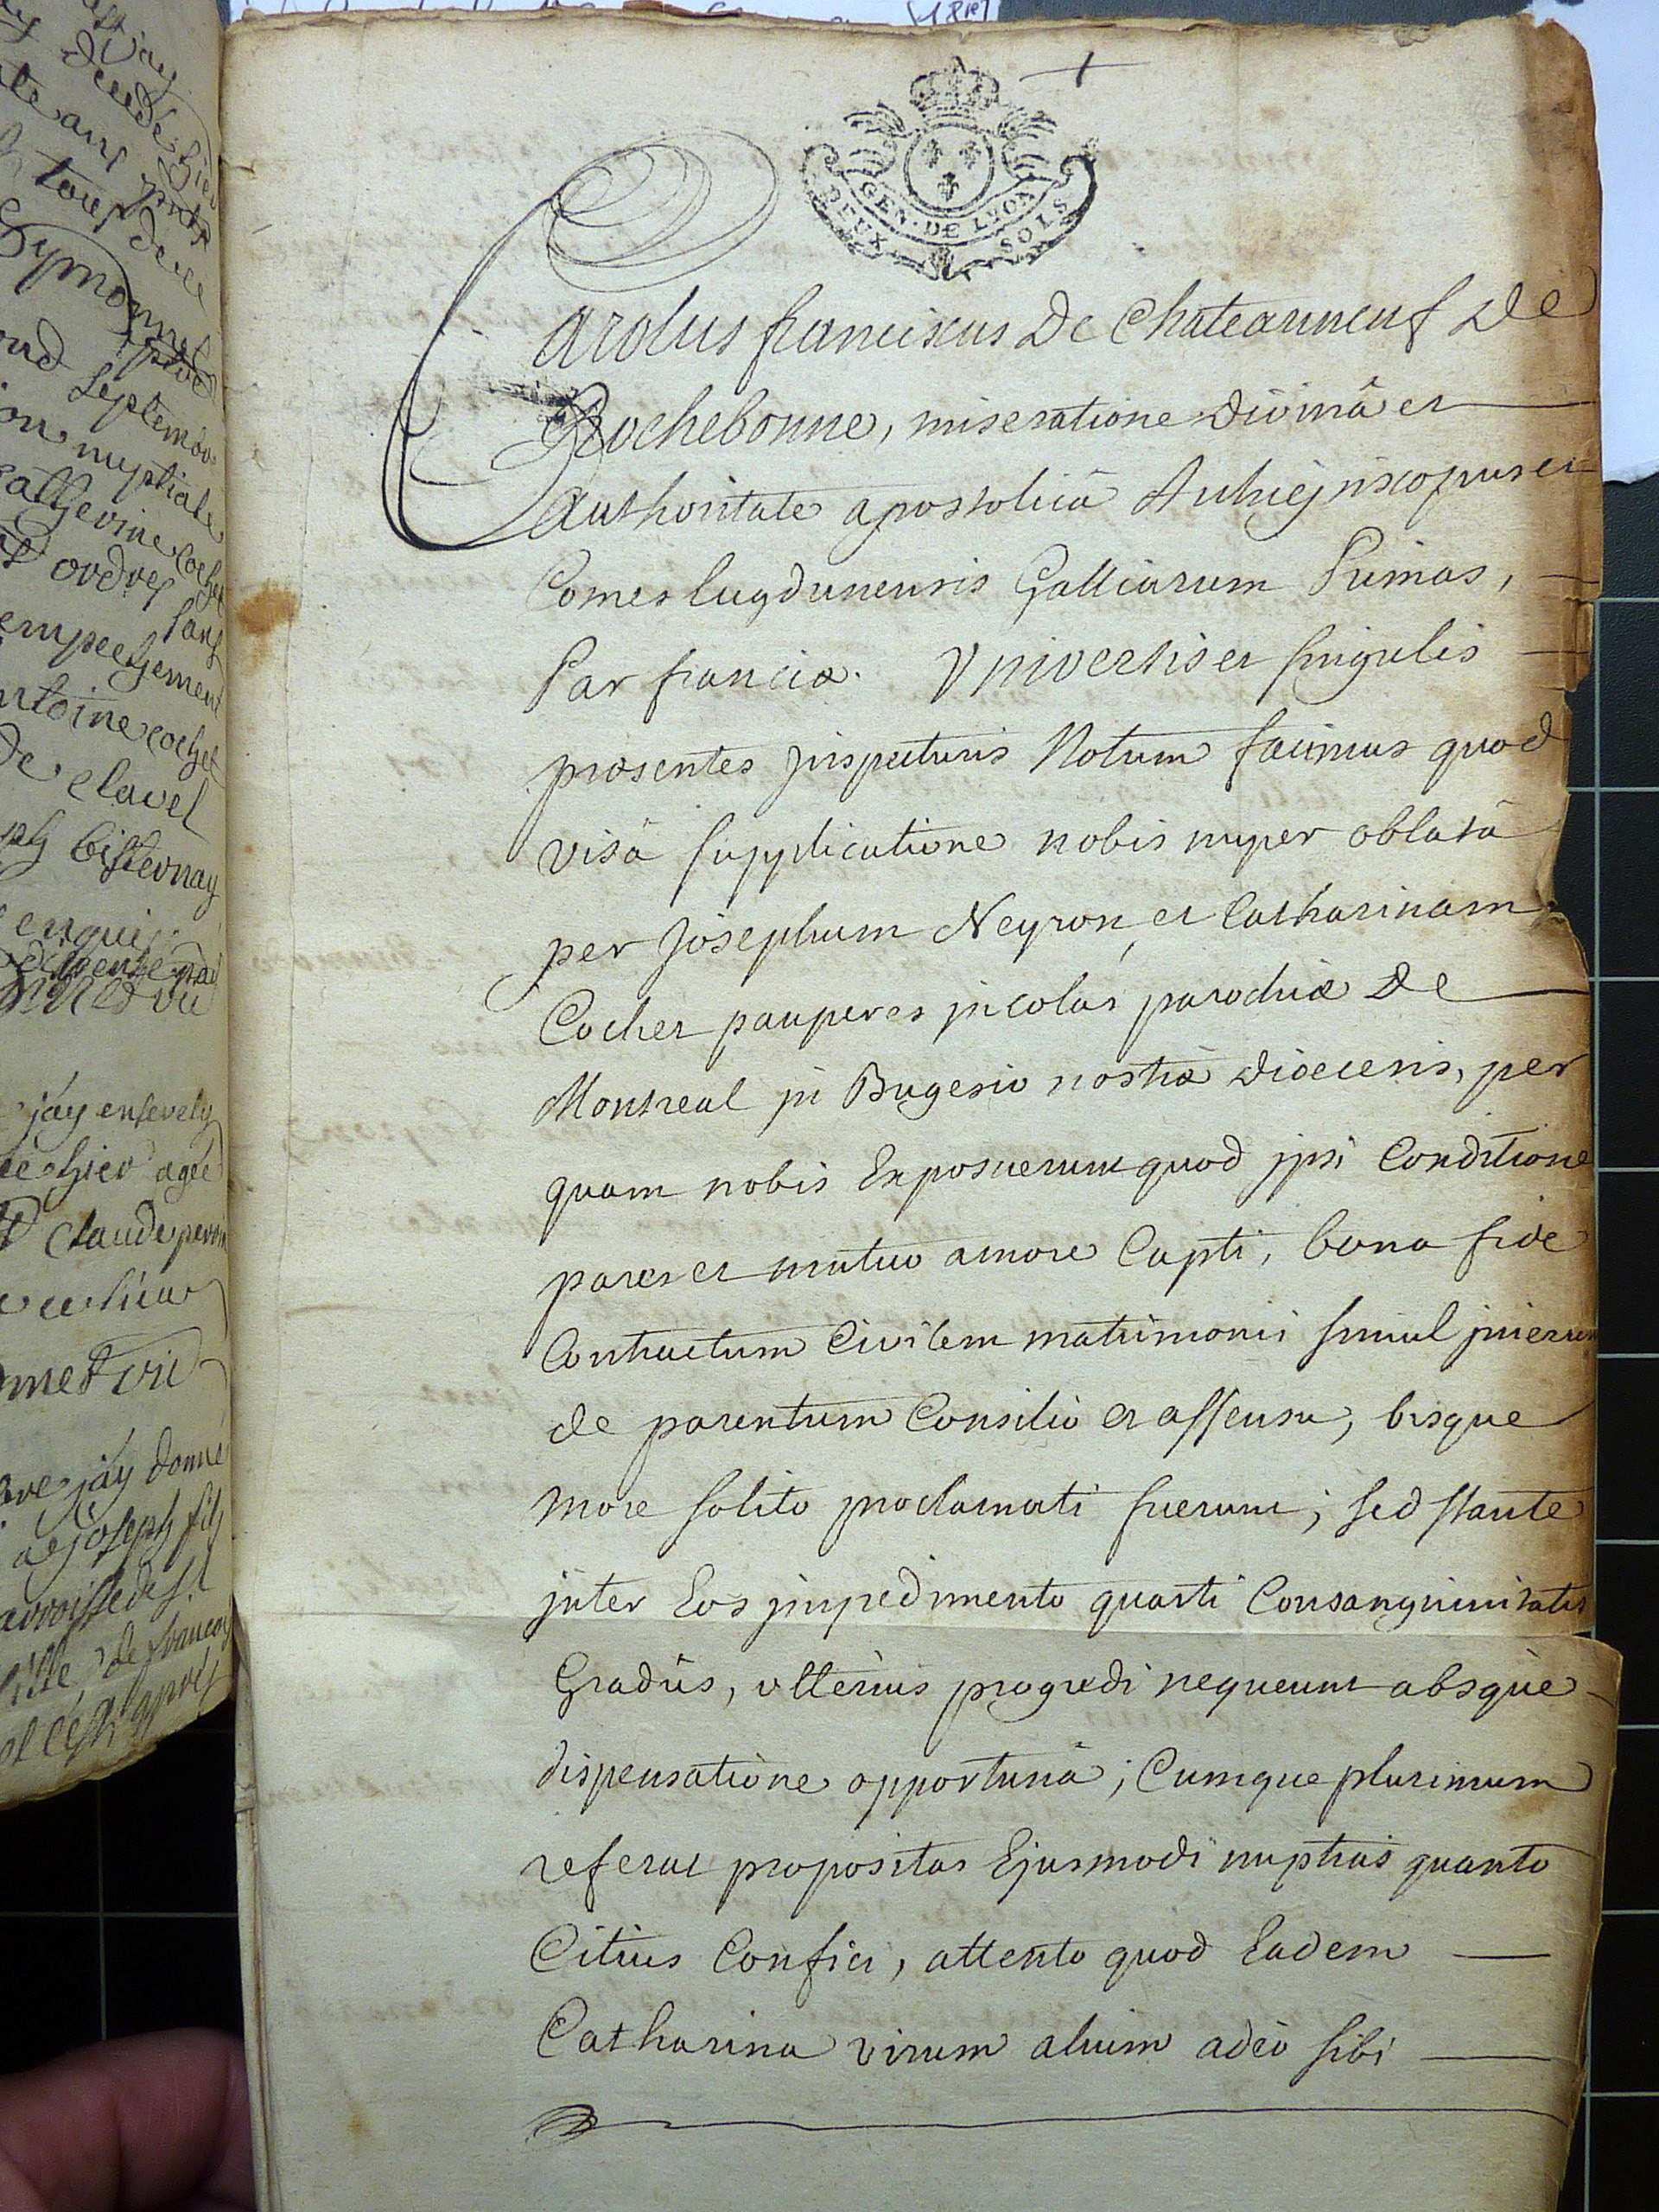 GEN. DE LYON
DEUX SOLS
Carolus franciscus De Chateauneuf De
Rochebonne, miseratione Divinâ et
Authoritate apostolicâ Archiepiscopus et
Comes lugdunensis Galliarum Primas,
Par franciæ. Vniversis et singulis
præsentes jnspecturis Notum facimus quod
visâ supplicatione nobis nuper oblatâ
per Josephum Neyron, et Catharinam
Cochet pauperes jncolas parochiæ De
Montreal jn Bugesio nostræ Diœcesis, per
quam nobis Exposuerunt quod jpsi Conditione
pares et mutuo amore Capti, bona fide
Contractum Civilem matrimonii simul jnierunt
de parentum Consilio et assensu, bisque
more solito proclamati fuerunt; sed stante
jnter Eos jmpedimento quarti Consanguinitatis
Gradûs, vlterius progredi nequeunt absque
dispensatione opportunâ; Cumque plurimum
referat propositas Ejusmodi nuptias quanto
Citius Confici, attento quod Eadem
Catharina virum alium adeo sibi
toref
Septem
nuptiale
Catherine Cochet
ordres sans
empeschement
Cochet
de clavel
enqui
jay ensevely
hier agée
Claude
jay donné
joseph fils
de francoy